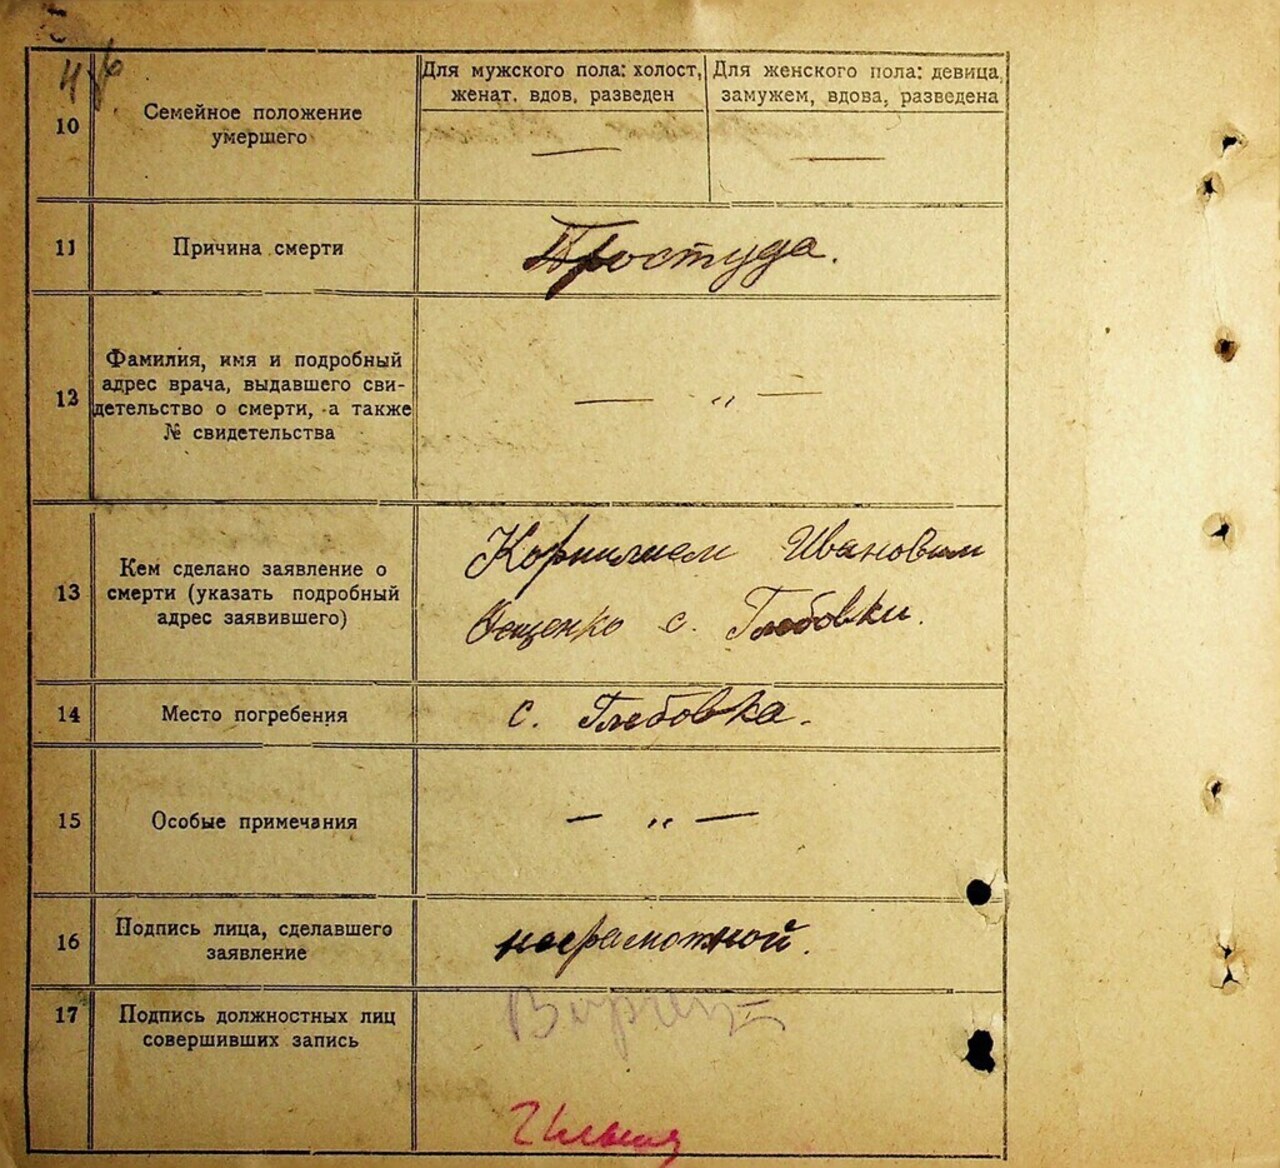 10
Семейное положение
умершего
Для мужского пола: холост,
женат, вдов, разведен
Для женского пола: девица,
замужем, вдова, разведена
—
—
11
Причина смерти
Простуда.
12
Фамилия, имя и подробный
адрес врача, выдавшего сви-
детельство о смерти, а также
№ свидетельства
— „ —
13
Кем сделано заявление о
смерти (указать подробный
адрес заявившего)
Корнилием Ивановым
с. Глебовки.
14
Место погребения
с. Глебовка.
15
Особые примечания
— „ —
16
Подпись лица, сделавшего
заявление
неграмотной.
17
Подпись должностных лиц
совершивших запись